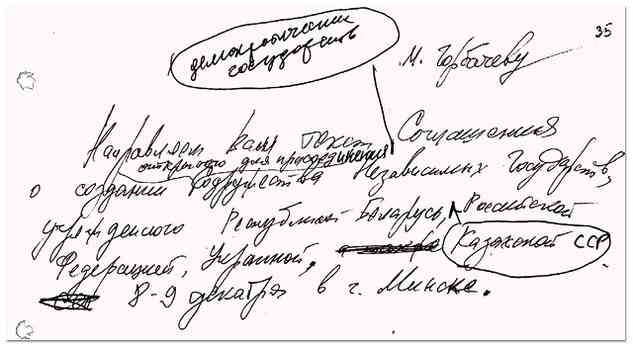 35
демократических
государств
М. Горбачеву
Направляем Вам текст Соглашения
открытого для присоединения
о создании Содружества Независимых Государств,
учрежденного Республикой Беларусь, Российской
Федерацией, Украиной, Казахской ССР
8-9 декабря в г. Минске.